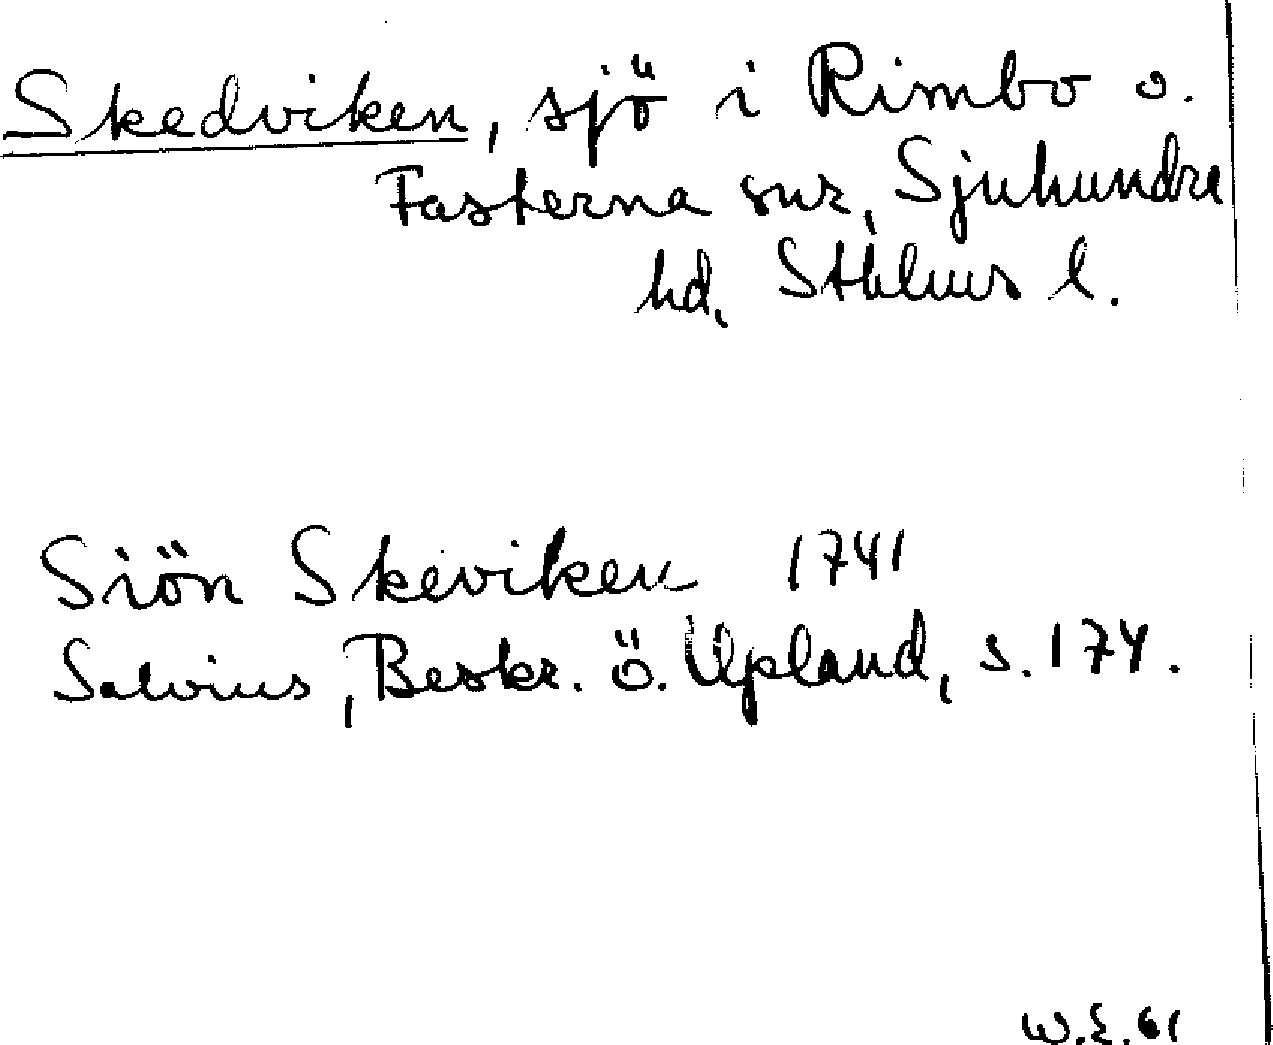 Skedviken, sjö i Rimbo o.
Fasterna snr, Sjuhundra
hd, Sthlms l.
Siön Skeviken 1741
Salvius, Beskr. ö. Upland, s. 174.
W.E. 61